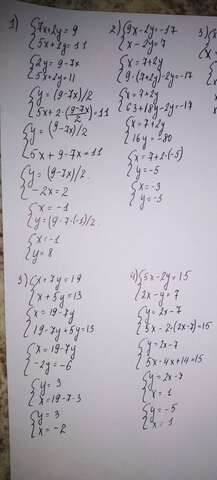 1) {7x+2y=9
{5x+2y=11
{2y=9-7x
{5x+2y=11
{y=(9-7x)/2
{5x+2·(9-7x)/2=11
{y=(9-7x)/2
{5x+9-7x=11
{y=(9-7x)/2
{-2x=2
{x=-1
{y=(9-7·(-1)/2
{x=-1
{y=8
2) {9x-2y=-17
{x-2y=7
{x=7+2y
{9·(7+2y)-2y=-17
{x=7+2y
{63+18y-2y=-17
{x=7+2y
{16y=-80
{x=7+2·(-5)
{y=-5
{x=-3
{y=-5
3)
3) {x+7y=19
{x+5y=13
{x=19-7y
{19-7y+5y=13
{x=19-7y
{-2y=-6
{y=3
{x=19-7·3
{y=3
{x=-2
4) {5x-2y=15
{2x-y=7
{y=2x-7
{5x-2·(2x-7)=15
{y=2x-7
{5x-4x+14=15
{y=2x-7
{x=1
{y=-5
{x=1